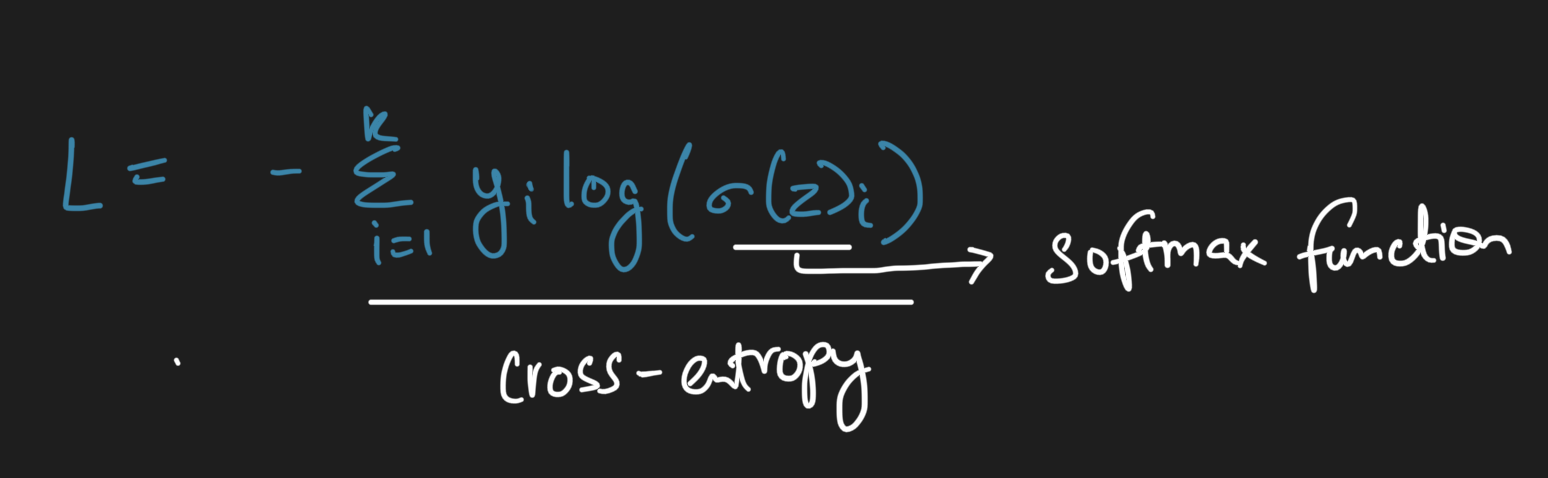 L = - k∑i=1 yi log(σ(z)i)
softmax function
cross-entropy